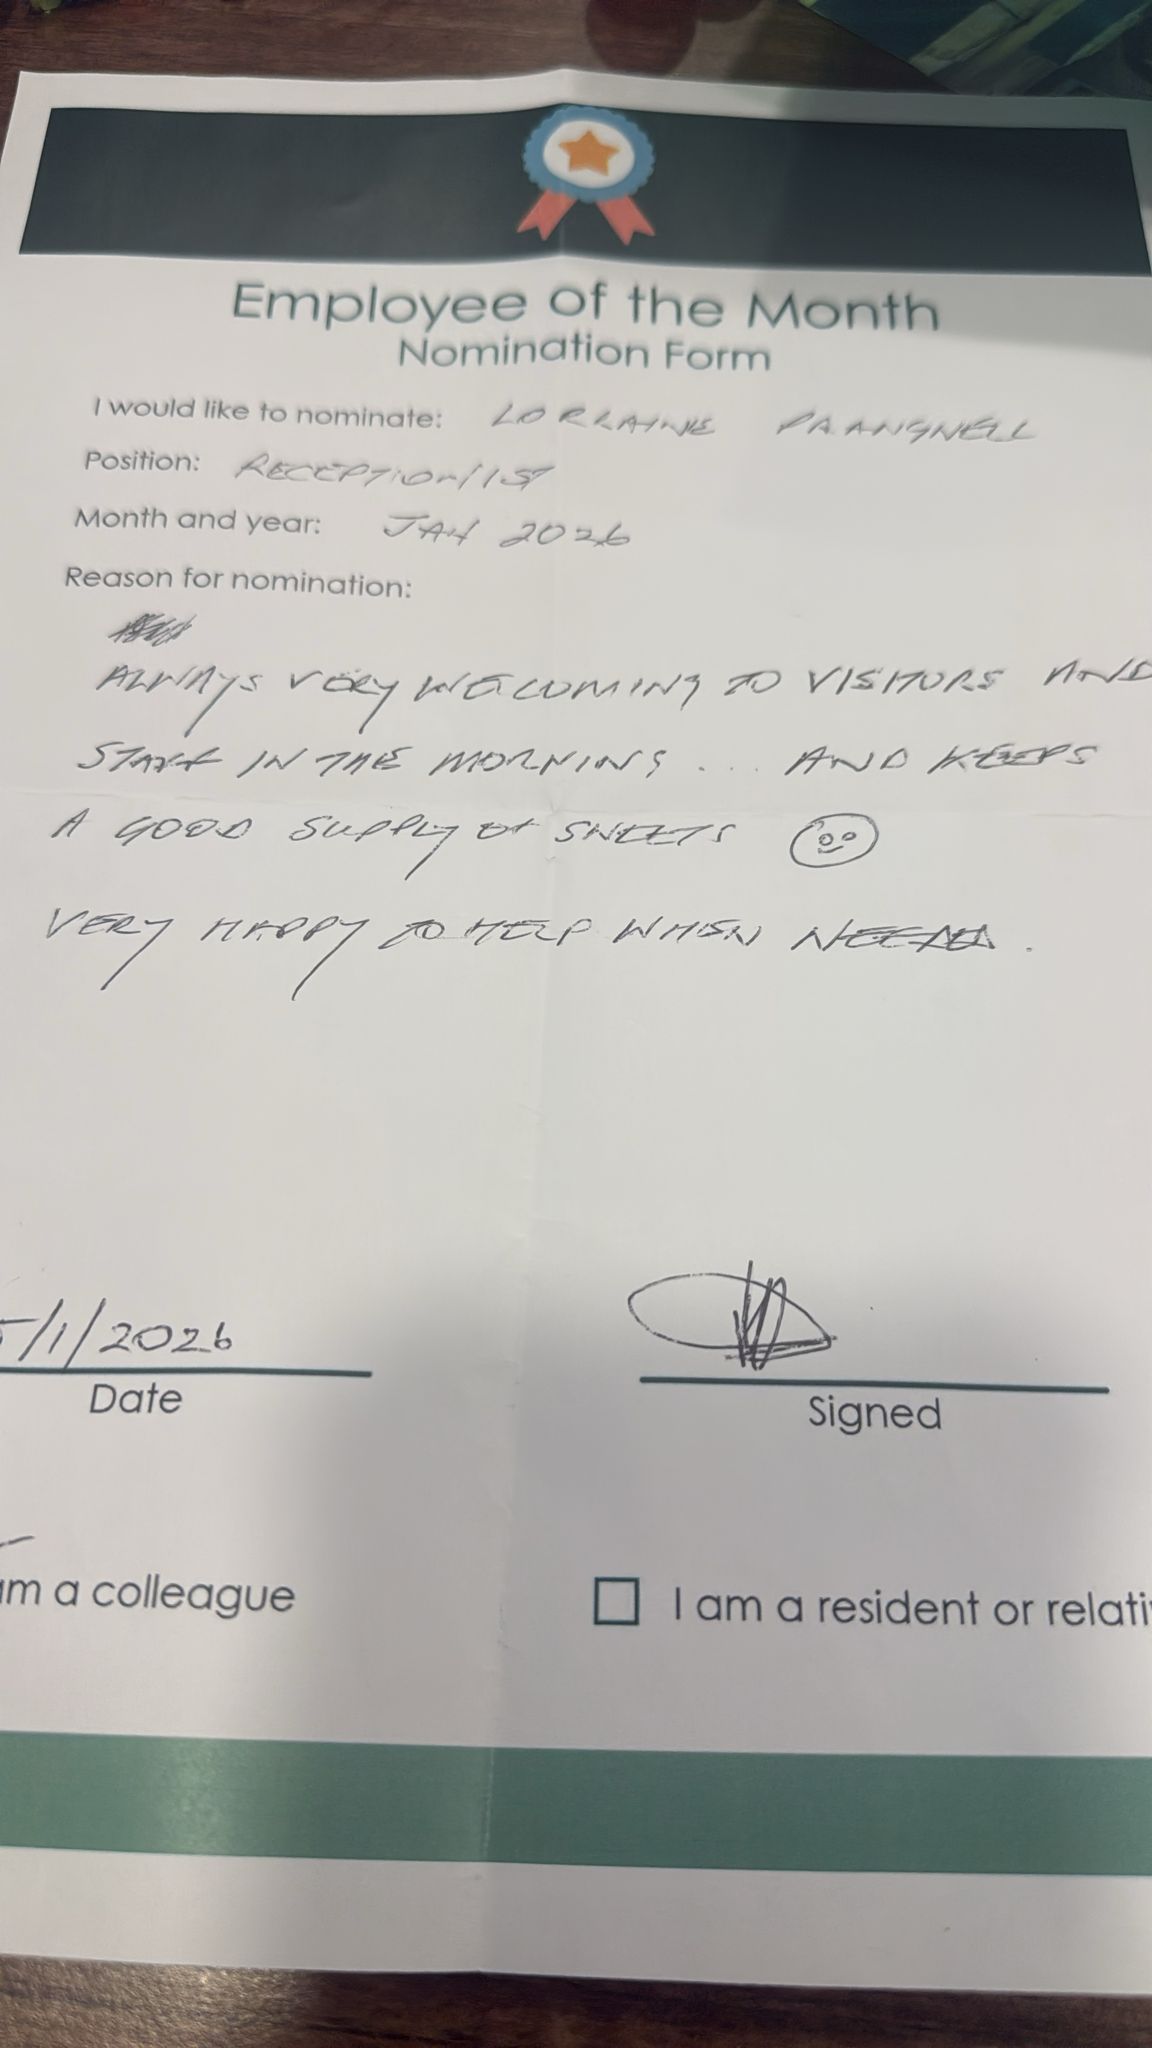 Employee of the Month
Nomination Form
I would like to nominate: LORRAINE
Position: RECEPTIONIST
Month and year: JAN 2026
Reason for nomination:
ALWAYS VERY WELCOMING TO VISITORS AND
STAFF IN THE MORNING ... AND KEEPS
A GOOD SUPPLY OF SWEETS
VERY HAPPY TO HELP WHEN NEEDED.
5/1/2026
Date
Signed
am a colleague
I am a resident or relati